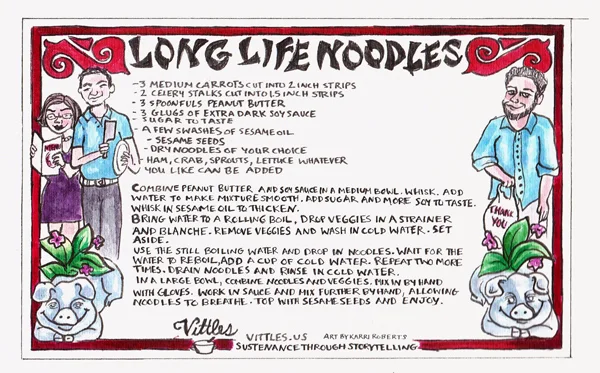 LONG LIFE NOODLES
-3 MEDIUM CARROTS CUT INTO 2 INCH STRIPS
-2 CELERY STALKS CUT INTO 1.5 INCH STRIPS
-3 SPOONFULS PEANUT BUTTER
-3 GLUGS OF EXTRA DARK SOY SAUCE
SUGAR TO TASTE
-A FEW SWASHES OF SESAME OIL
-SESAME SEEDS
-DRY NOODLES OF YOUR CHOICE
-HAM, CRAB, SPROUTS, LETTUCE WHATEVER
YOU LIKE CAN BE ADDED
MENU
COMBINE PEANUT BUTTER AND SOY SAUCE IN A MEDIUM BOWL. WHISK. ADD
WATER TO MAKE MIXTURE SMOOTH. ADD SUGAR AND MORE SOY TO TASTE.
WHISK IN SESAME OIL TO THICKEN.
BRING WATER TO A ROLLING BOIL, DROP VEGGIES IN A STRAINER
AND BLANCHE. REMOVE VEGGIES AND WASH IN COLD WATER. SET
ASIDE.
USE THE STILL BOILING WATER AND DROP IN NOODLES. WAIT FOR THE
WATER TO REBOIL, ADD A CUP OF COLD WATER. REPEAT TWO MORE
TIMES. DRAIN NOODLES AND RINSE IN COLD WATER.
IN A LARGE BOWL, COMBINE NOODLES AND VEGGIES. MIX IN BY HAND
WITH GLOVES. WORK IN SAUCE AND MIX FURTHER BY HAND, ALLOWING
NOODLES TO BREATHE. TOP WITH SESAME SEEDS AND ENJOY.
THANK
YOU
Vittles
VITTLES.US ART BY KARRI ROBERTS
SUSTENANCE THROUGH STORYTELLING